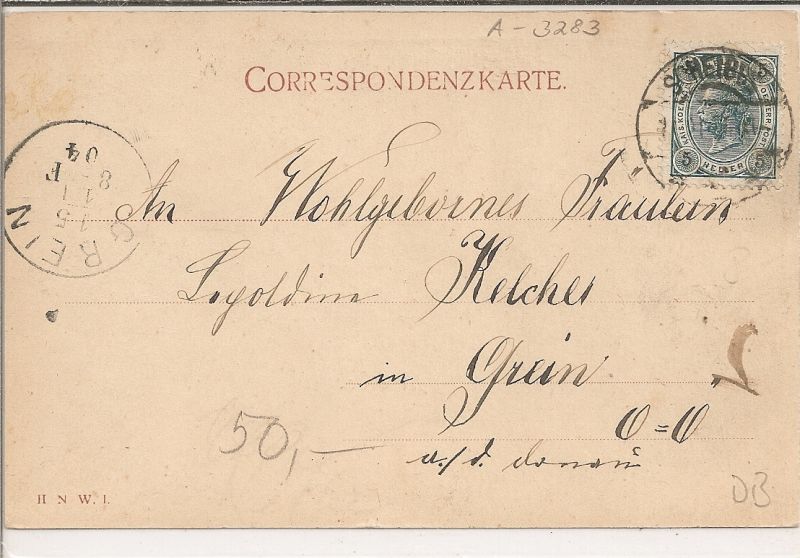 A-3283
CORRESPONDENZKARTE.
KAIS. KOEN. OESTERR. POST
5 HELLER 5
SCHEIBBS
GREIN
15
1
8-F
04
An Wohlgebornes Fräulein
Leopoldine Kelcher
in Grein
O=Ö
a./d. Donau
50,-
H N W. I.
DB